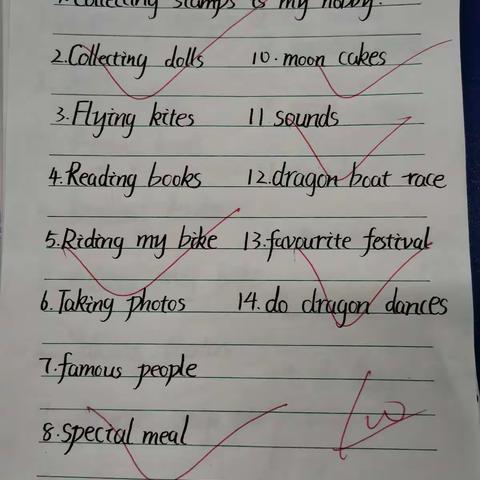 1.Collecting stamps is my hobby.
2.Collecting dolls
3.Flying kites
4.Reading books
5.Riding my bike
6.Taking photos
7.famous people
8.special meal
10.moon cakes
11 sounds
12.dragon boat race
13.favourite festival
14.do dragon dances